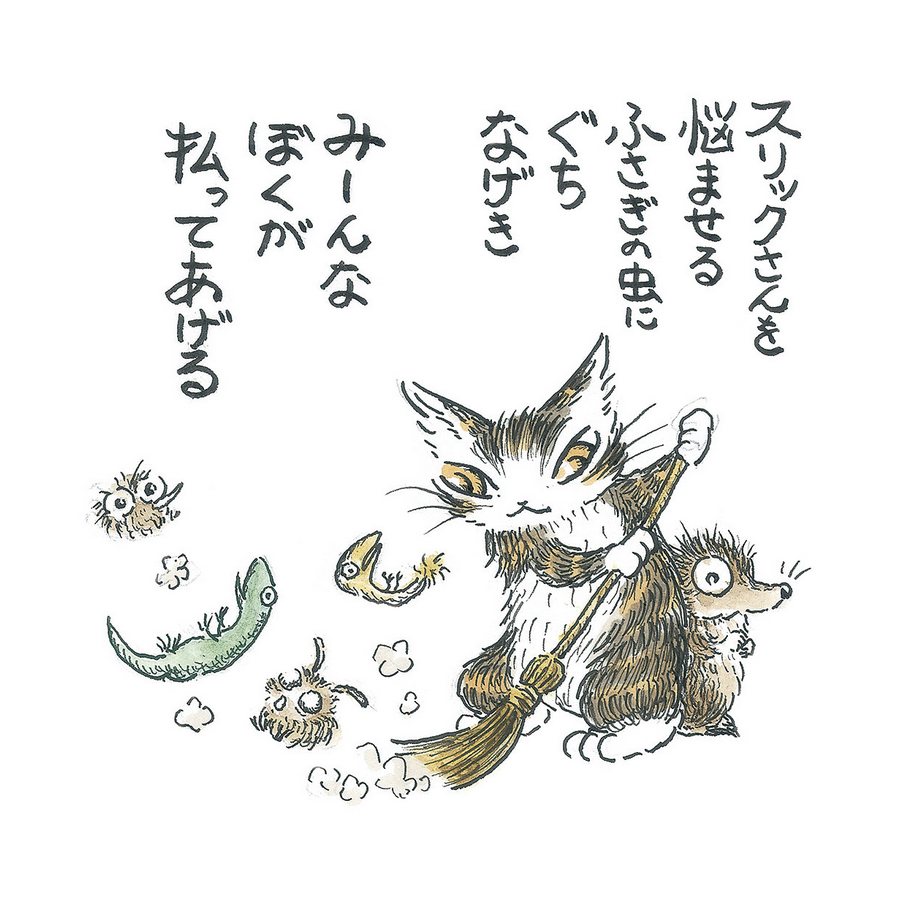 スリックさんを
悩ませる
ふさぎの虫に
ぐち
なげき
みーんな
ぼくが
払ってあげる